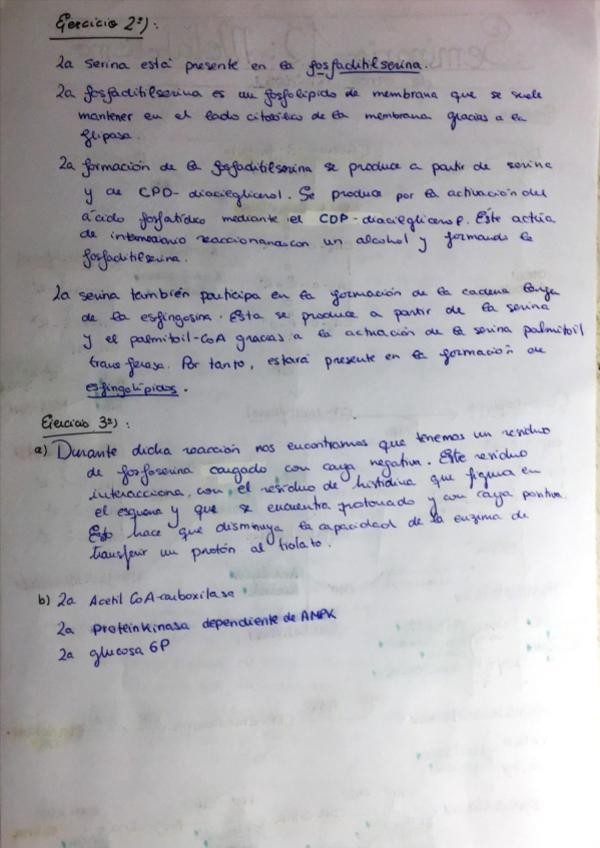 Ejercicio 2º):
La serina está presente en la fosfaditilserina.
La fosfaditilserina es un fosfolípido de membrana que se suele
mantener en el lado citosólico de la membrana gracias a la
flipasa.
La formación de la fosfaditilserina se produce a partir de serina
y de CPD-diacilglicerol. Se produce por la activación del
ácido fosfatídico mediante el CDP-diacilglicerol. Este actúa
de intermediario reaccionando con un alcohol y formando la
fosfaditilserina.
La serina también participa en la formación de la cadena larga
de la esfingosina. Esta se produce a partir de la serina
y el palmitoil-CoA gracias a la actuación de la serina palmitoil
transferasa. Por tanto, estará presente en la formación de
esfingolípidos.
Ejercicio 3º):
a) Durante dicha reacción nos encontramos que tenemos un residuo
de fosfoserina cargado con carga negativa. Este residuo
interacciona con el residuo de histidina que figura en
el esquema y que se encuentra protonado y con carga positiva.
Esto hace que disminuya la capacidad de la enzima de
transferir un protón al tiolato.
b) La Acetil CoA-carboxilasa
La proteinkinasa dependiente de AMPK
La glucosa 6P